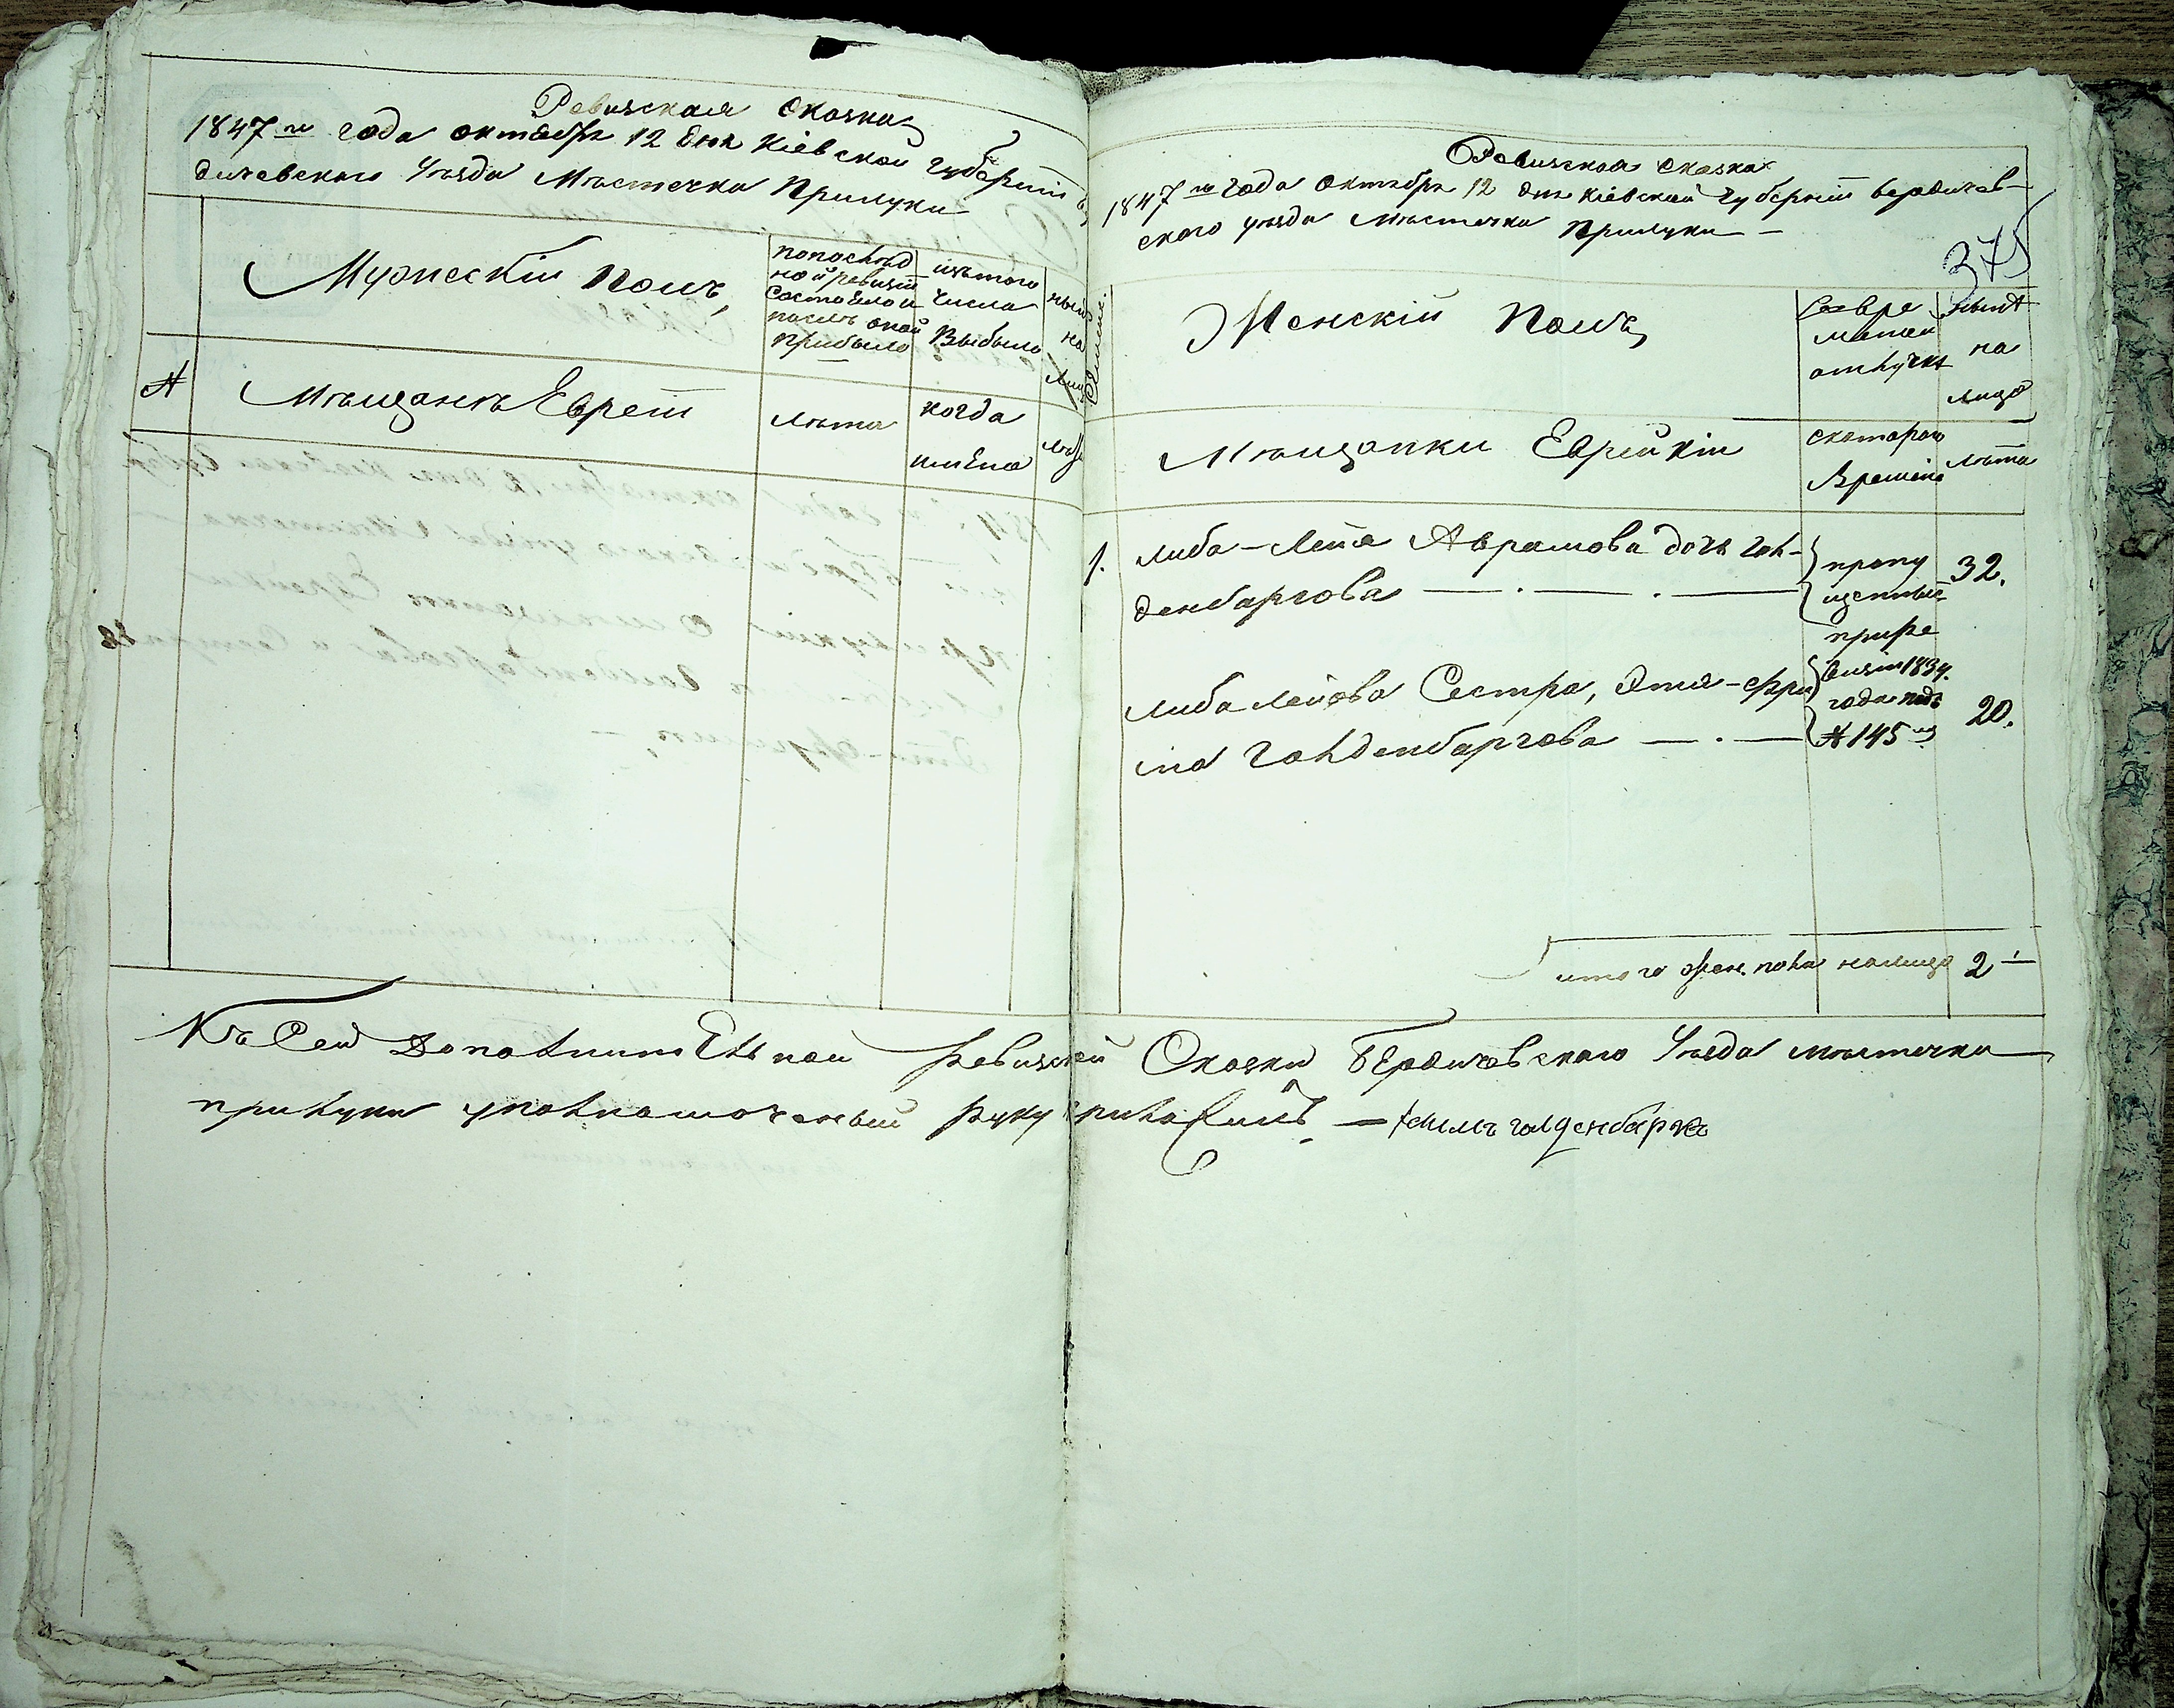 Ревизская Сказка
1847 го года октября 12 дня Кіевской Губерніи Бер
дичевского Уезда Местечка Прилуки
Мужескій Полъ,
по послѣд
ной ревизіи
состояло и
послѣ оной
прибыло
изъ того
числа
Выбыло
нынѣ
на
лицо
№
Мѣщанъ Евреи
лѣта
когда
имѣна
лѣта
Ревизская Сказка
1847 го года Октября 12 дня Кіевской Губерніи Бердичев-
ского уезда Местечка Прилуки —
375
Женскій Полъ,
Во вре
менной
отлучкѣ
нынѣ
на
лицо
Мѣщанки Еврейкіи
скоторого
Времени
лѣта
1. Либа-Лейя Аврамова дочь Гол-
денбаргова — . — . —
пропу
щенные
при ре
визіи 1834.
года подъ
№ 145 мъ
32.
Либа Лейова Сестра, Этя-Фру
ма Голденбаргова — . —
20.
итого жен. пола налицо 2 —
Къ Сей Дополнителной Ревизской Сказки Бердичевского Уезда местечка
прилуки уполномоченый Руку приложилъ — голденбаргъ